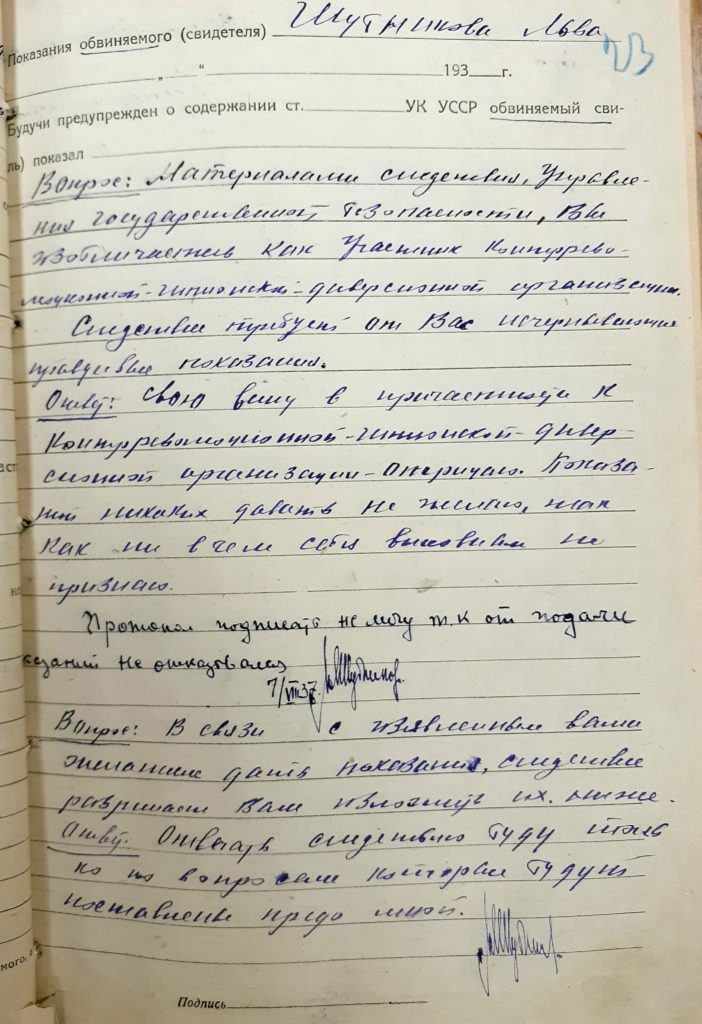 Показания обвиняемого (свидетеля) Шутникова Льва
23
„ “ 193 г.
Будучи предупрежден о содержании ст. УК УССР обвиняемый сви-
ль) показал
Вопрос: Материалами следствия, Управле-
ния государственной безопасности, Вы
изобличаетесь как участник контррево-
люционной-шпионской-диверсионной организации.
Следствие требует от Вас исчерпывающие
правдивые показания.
Ответ: Свою вину в причастности к
контрреволюционной-шпионской-дивер-
сионной организации-отрицаю. Показа-
ний никаких давать не желаю, так
как ни в чем себя виновным не
признаю.
Протокол подписать не могу т.к от подачи
казаний не отказовался
7/VIII37
Вопрос: В связи с изъявленным вами
желанием дать показания, следствие
разрешает Вам изложить их. ниже.
Ответ. Отвечать следствию буду толь
ко по вопросам которые будут
поставлены предо мной.
мого,
Подпись